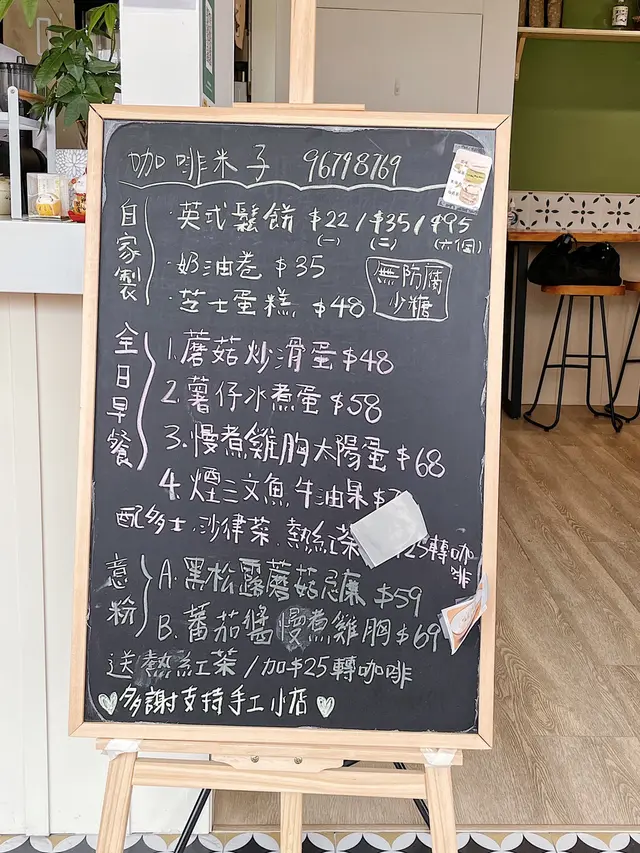 咖啡米子 96798769
自家製
·英式鬆餅 $22/$35/$95
(一) (二) (六個)
·奶油卷 $35
·芝士蛋糕 $48
無防腐
少糖
全日早餐
1.蘑菇炒滑蛋 $48
2.薯仔水煮蛋 $58
3.慢煮雞胸太陽蛋 $68
4.煙三文魚牛油果
配多士.沙律菜.熱紅茶 $25轉咖啡
意粉
A.黑松露蘑菇忌廉 $59
B.蕃茄醬慢煮雞胸 $69
送熱紅茶/加$25轉咖啡
♡多謝支持手工小店♡